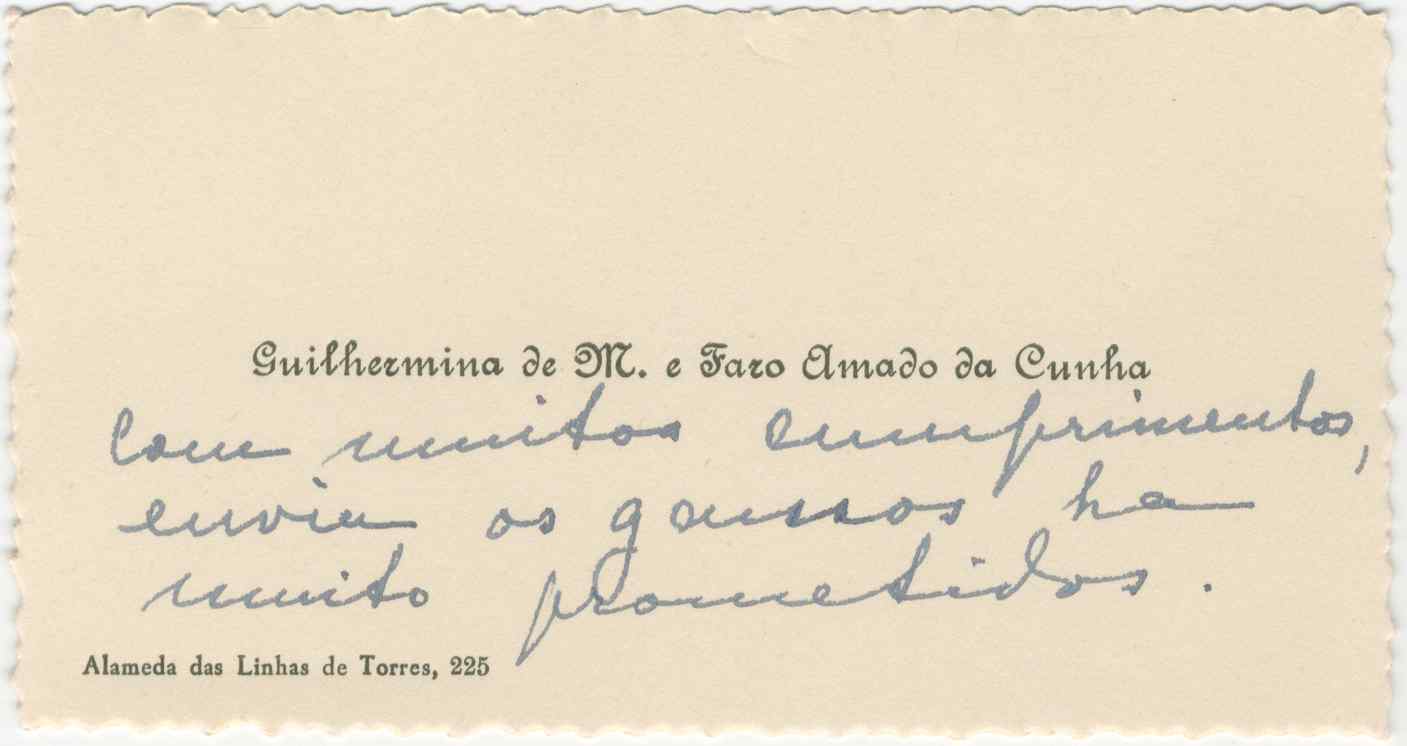 Guilhermina de M. e Faro Amado da Cunha
Com muitos cumprimentos,
envia os gansos ha
muito prometidos.
Alameda das Linhas de Torres, 225